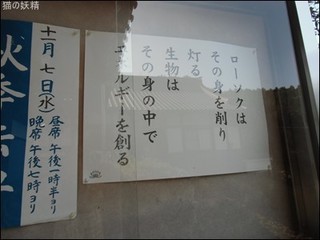 猫の妖精
ローソクは
その身を削り
灯る
生物は
その身の中で
エネルギーを創る
十一月七日(水)
昼席 午後一時半ヨリ
晩席 午後七時ヨリ
秋季